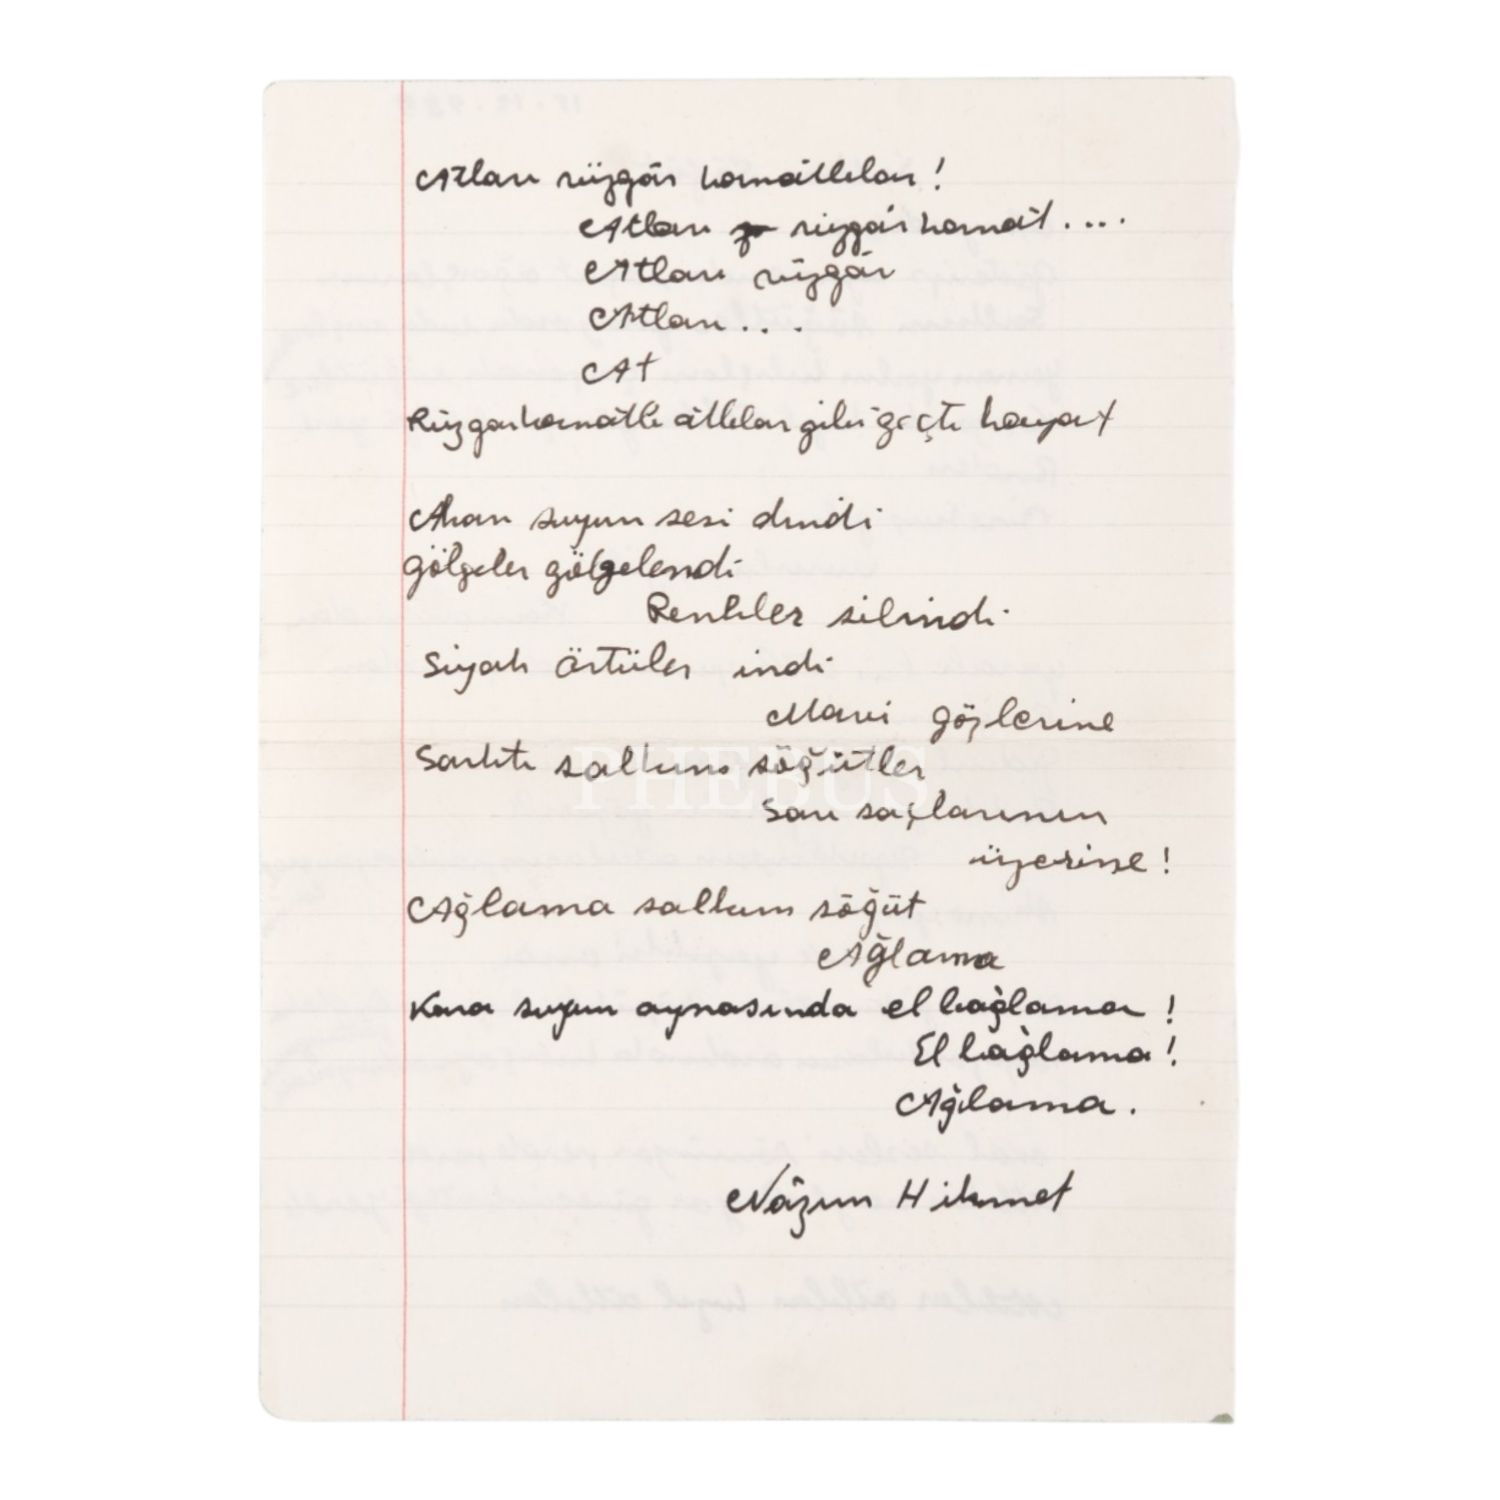 Atları rüzgâr kanatlılar!
Atları rüzgâr kanat....
Atları rüzgâr
Atları...
At
Rüzgar kanatlı atlılar gibi geçti hayat
Akan suyun sesi dindi
gölgeler gölgelendi
Renkler silindi
Siyah örtüler indi
Mavi gözlerine
Sarktı salkım söğütler
PHEBUS
Sarı saçlarının
üzerine!
Ağlama salkım söğüt
Ağlama
Kara suyun aynasında el bağlama!
El bağlama!
Ağlama.
Nâzım Hikmet